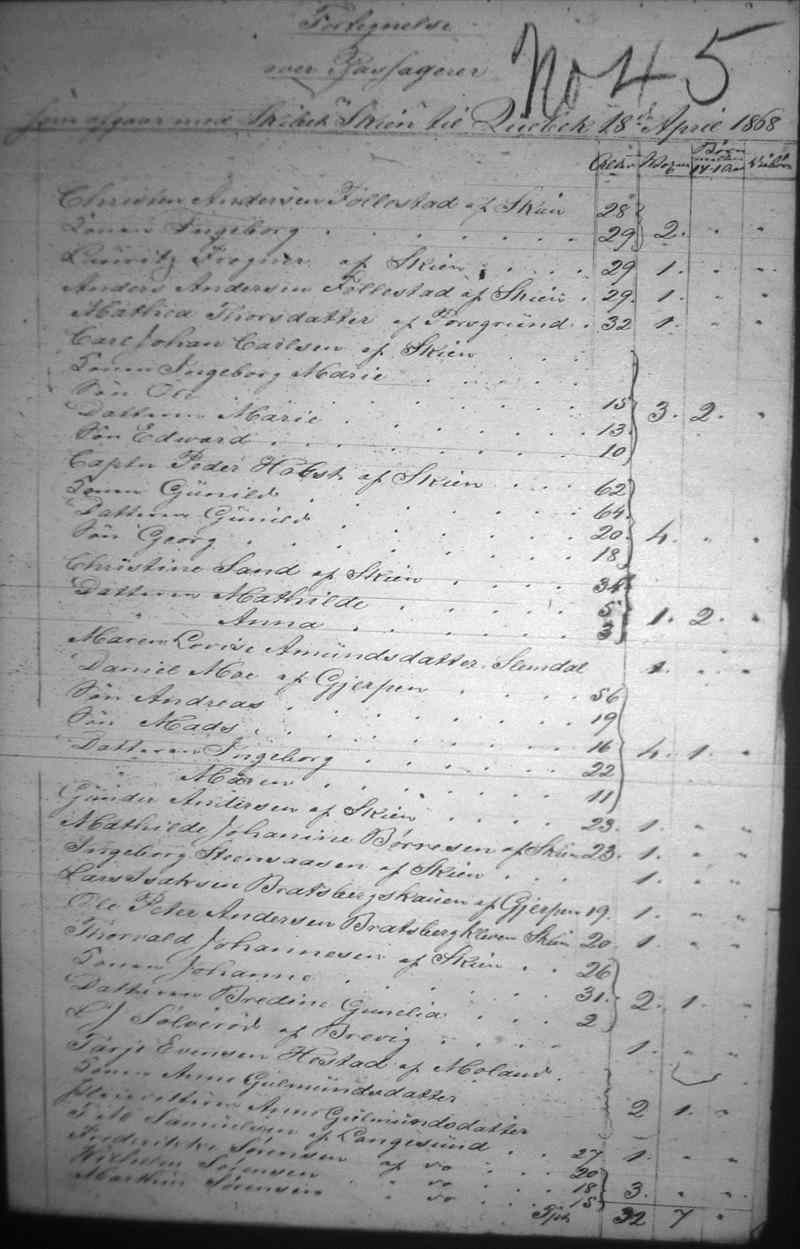 Fortegnelse
over Passagerer
No 45
som afgaar med Skibet "Skien" til Quebek 18de April 1868
Alder Voxne Børn 14-1 Aar
Christen Andersen Föllestad af Skien 28
Konen Ingeborg 29 2.
Lauritz Fregner af Skien 29 1.
Anders Andersen Föllestad af Skien 29. 1.
Mathea Thorsdatter af Porsgrund 32 1.
Carl Johan Carlsen af Skien
Konen Ingeborg Marie
Søn Ole 15
Datteren Marie 13 3. 2.
Søn Edward 10
Captn Peder Høbst af Skien 62
Konen Günild 64
Datteren Günild 20
Søn Georg 18 4.
Christine Sand af Skien 34
Datteren Mathilde 5
Anna 3 1. 2.
Maren Lovise Amündsdatter Slemdal 1.
Daniel Moe af Gjerpen 56
Søn Andreas 19
Søn Mads 16
Datteren Ingeborg 22 4. 1.
Maren 11
Günder Andersen af Skien 23. 1.
Mathilde Johanine Børresen af Skien 23. 1.
Ingeborg Steensaasen af Skien 1.
Lars Isaksen Bratsbergskauen af Gjerpen 19. 1.
Ole Peter Andersen Bratsbergkleven Skien 20 1.
Thorvald Johannesen af Skien 26
Konen Johanne 31.
Datteren Bredine Gunelia 2 2. 1.
L J Sølverød af Brevig 1.
Tarje Evensen Hostad af Moland
Konen Anne Gülmündsdatter
Anne Gülmündsdatter 2 1.
Samuelsen af Langesünd 27 1.
Fredrikke Sørensen af do 20
Wilhelm Sørensen " do 18 3.
Marthin Sørensen " do 15
Tpt. 32 7